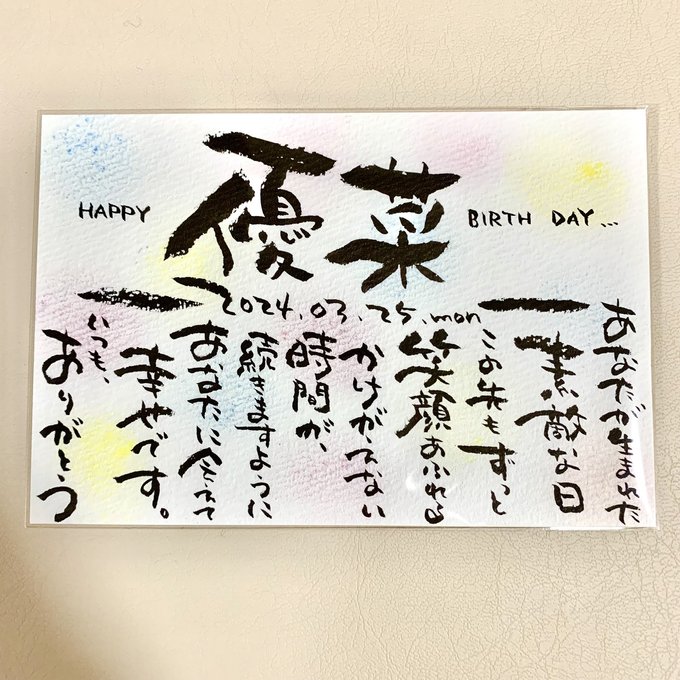 HAPPY
優菜
BIRTH DAY...
2024.03.25.mon
あなたが生まれた
素敵な日
この先もずっと
笑顔あふれる
かけがえない
時間が、
続きますように
あなたに会えて
幸せです。
いつも、
ありがとう